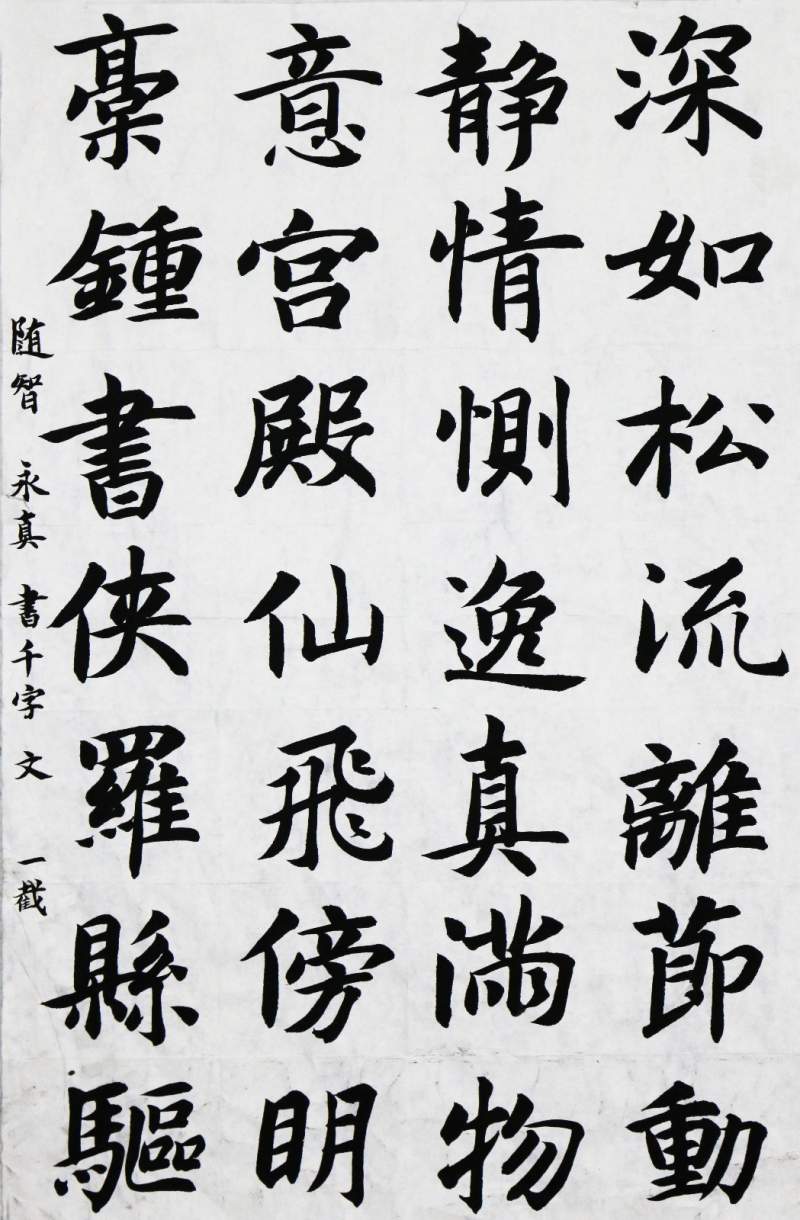 深如松流離節動
静情惻逸真満物
意宫殿仙飛傍明
稾鍾書侠羅縣驅
随智永真書千字文一截